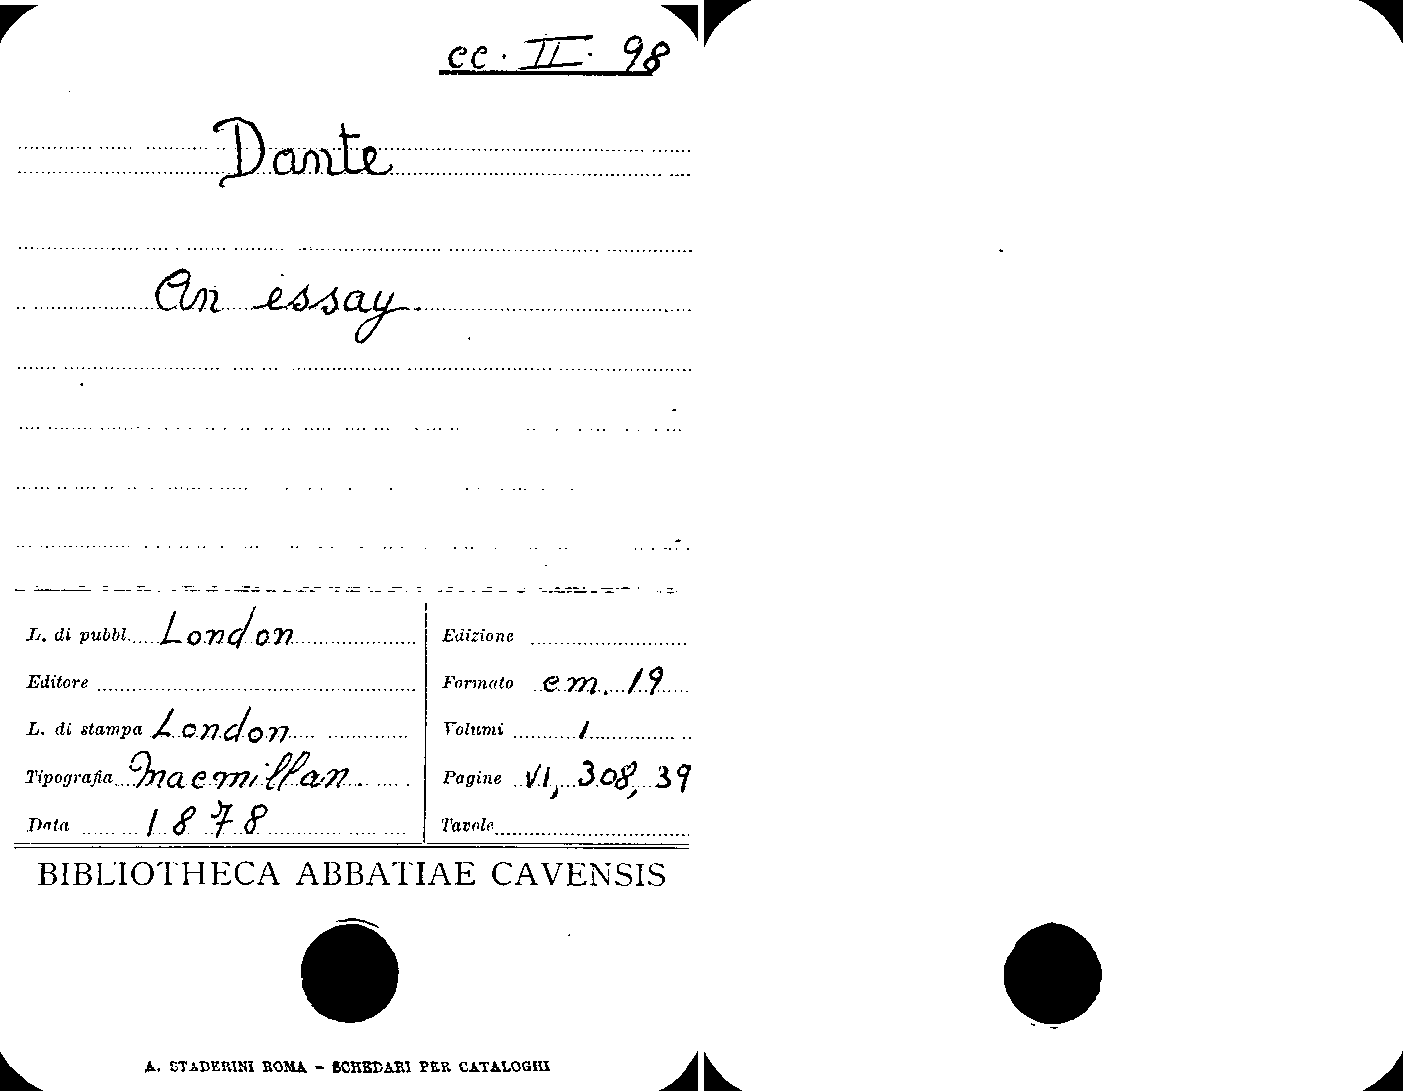 cc. II. 98
Dante
An essay.
L. di pubbl. London
Editore
L. di stampa London
Tipografia Macmillan.
Data 1878
Edizione
Formato cm. 19
Volumi 1
Pagine VI, 308, 39
Tavole
BIBLIOTHECA ABBATIAE CAVENSIS
A. STADERINI ROMA - SCHEDARI PER CATALOGHI